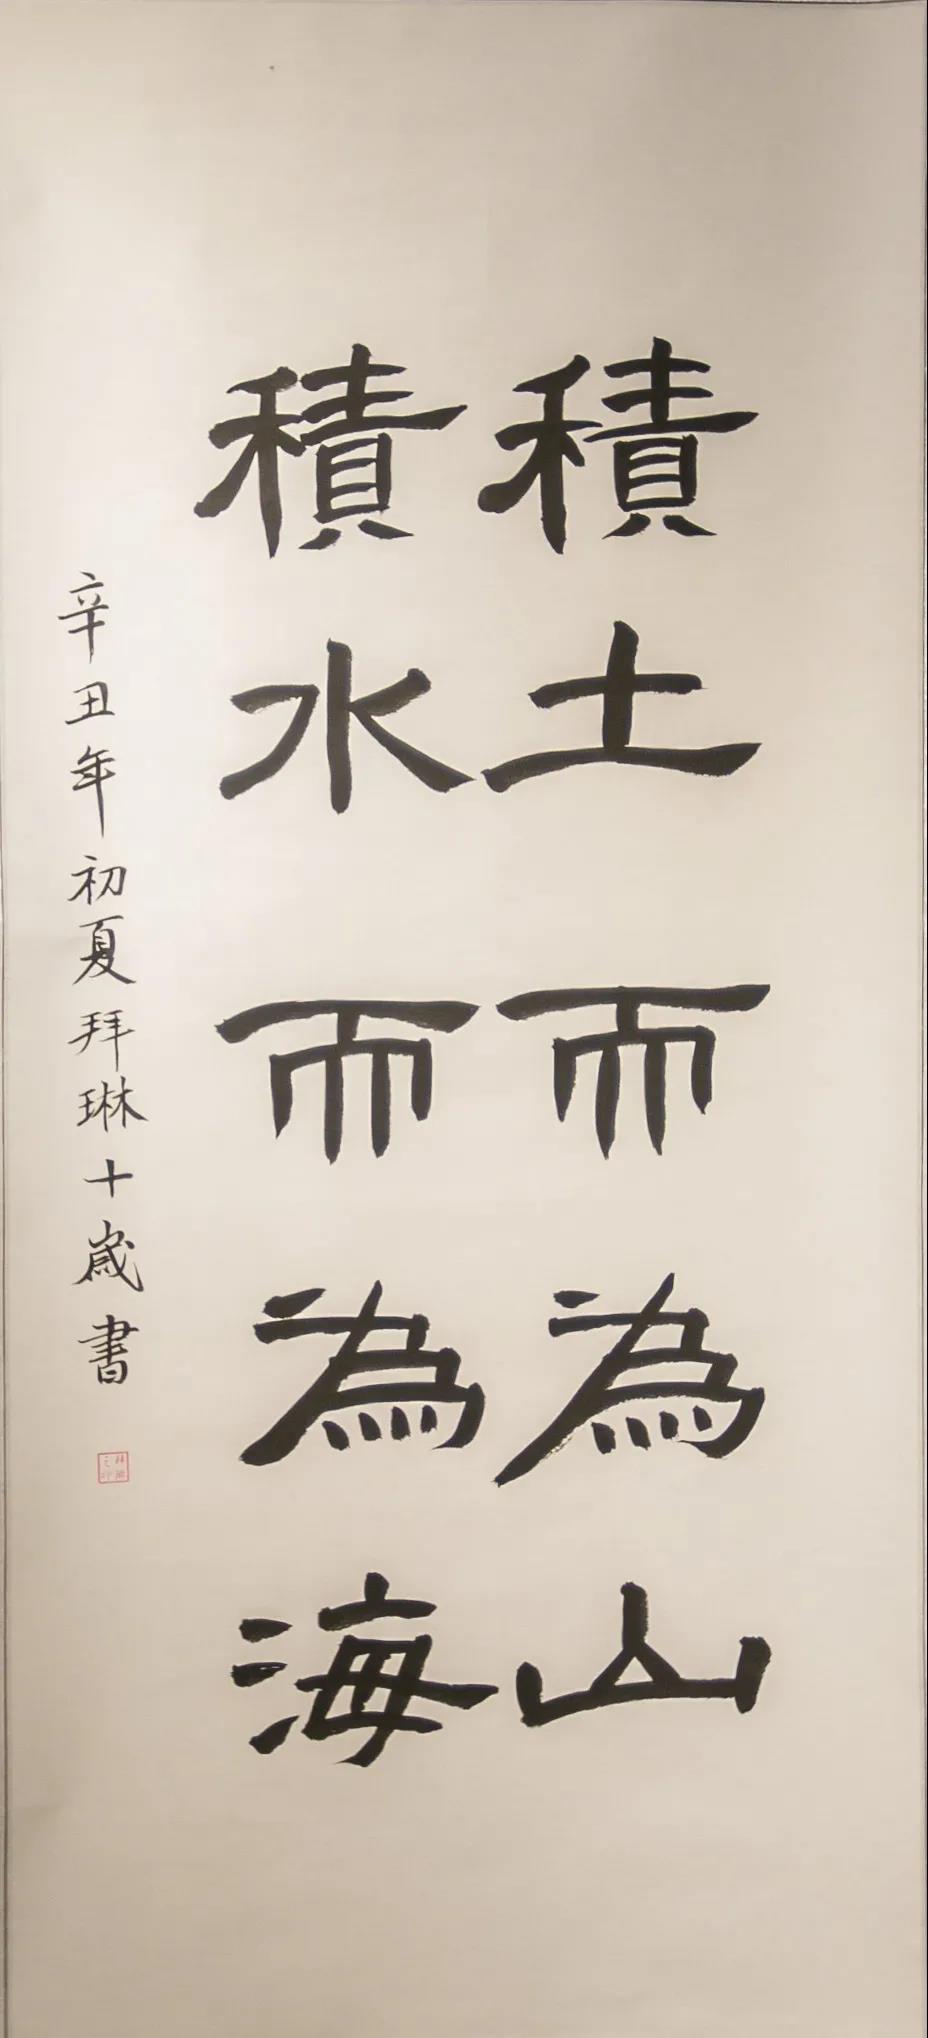 積土而為山
積水而為海
辛丑年初夏拜琳十歲書